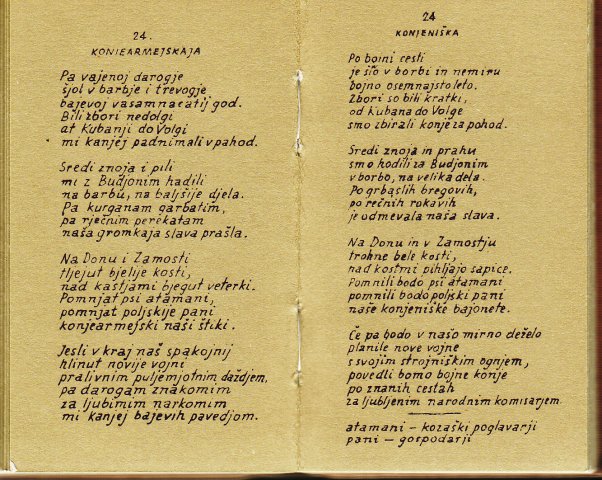 24.
KONJEARMEJSKAJA
Pa vajenoj darogje
šjol v barbje i trevogje
bajevoj vasamnacatij god.
Bili zbori nedolgi
at Kubanji do Volgi
mi kanjej padnimali v pahod.
Sredi znoja i pili
mi z Budjonim hadili
na barbu, na baljšije djela.
Pa kurganam garbatim,
pa rječnim perekatam
naša gromkaja slava prašla.
Na Donu i Zamosti
tljejut bjelije kosti,
nad kastjami bjegut veterki.
Pomnjat psi atamani,
pomnjat poljskije pani
konjearmejski naši štiki.
Jesli v kraj naš spakojnij
hlinut novije vojni
pralivnim puljemjotnim daždjem,
pa darogam znakomim
za ljubimim narkomim
mi kanjej bajevih pavedjom.
24
KONJENIŠKA
Po bojni cesti
je šlo v borbi in nemiru
bojno osemnajsto leto.
Zbori so bili kratki,
od Kubana do Volge
smo zbirali konje za pohod.
Sredi znoja in prahu
smo hodili za Budjonim
v borbo, na velika dela.
Po grbastih bregovih,
po rečnih rokavih
je odmevala naša slava.
Na Donu in v Zamostju
trohne bele kosti,
nad kostmi pihljajo sapice.
Pomnili bodo psi atamani
pomnili bodo poljski pani
naše konjeniške bajonete.
Če pa bodo v našo mirno deželo
planile nove vojne
s svojim strojniškim ognjem,
povedli bomo bojne konje
po znanih cestah
za ljubljenim narodnim komisarjem
atamani – kozaški poglavarji
pani – gospodarji